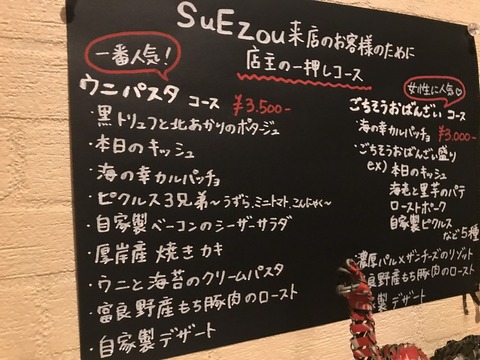 SuEzou来店のお客様のために
店主の一押しコース
一番人気!
ウニパスタ コース ¥3.500-
・黒トリュフと北あかりのポタージュ
・本日のキッシュ
・海の幸カルパッチョ
・ピクルス3兄弟〜うずら、ミニトマト、こんにゃく〜
・自家製ベーコンのシーザーサラダ
・厚岸産 焼きカキ
・ウニと海苔のクリームパスタ
・富良野産もち豚肉のロースト
・自家製デザート
女性に人気♡
ごちそうおばんざい コース
¥3.000-
・海の幸カルパッチョ
・ごちそうおばんざい盛り
ex) 本日のキッシュ
海老と里芋のパテ
ローストポーク
自家製ピクルス
など5種
・濃厚パル×ザンチーズのリゾット
良野産もち豚肉のロースト
製 デザート